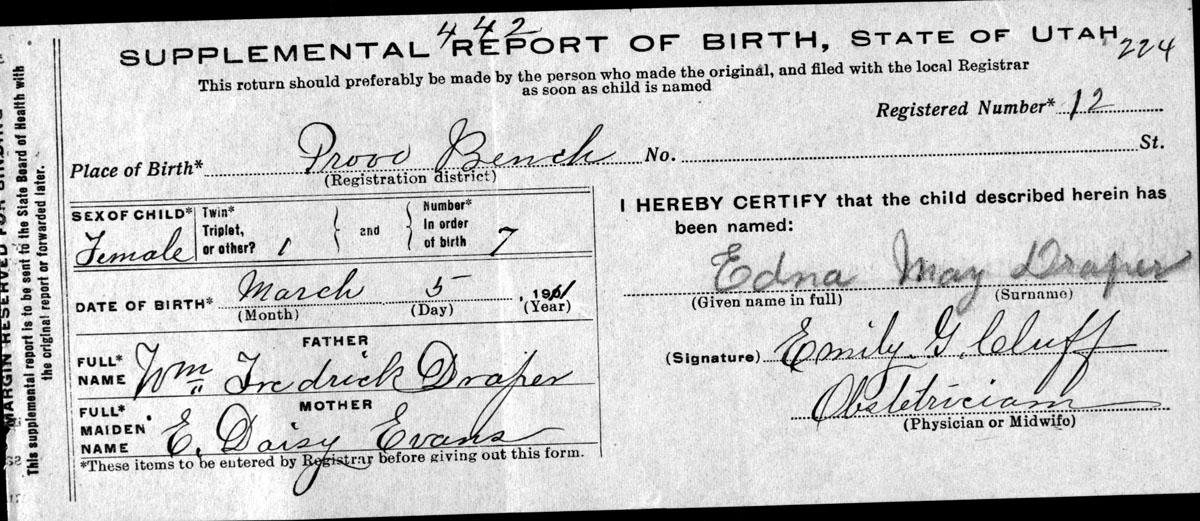 442
SUPPLEMENTAL REPORT OF BIRTH, STATE OF UTAH
224
This return should preferably be made by the person who made the original, and filed with the local Registrar
as soon as child is named
Registered Number* 12
Place of Birth* Provo Bench No. St.
(Registration district)
SEX OF CHILD* Female
Twin*
Triplet,
or other? 1
and
Number*
In order
of birth 7
DATE OF BIRTH* March 5, 1911
(Month) (Day) (Year)
FATHER
FULL*
NAME Wm Fredrick Draper
MOTHER
FULL*
MAIDEN
NAME E. Daisy Evans
*These items to be entered by Registrar before giving out this form.
I HEREBY CERTIFY that the child described herein has
been named:
Edna May Draper
(Given name in full) (Surname)
(Signature) Emily G. Cluff
Obstetrician
(Physician or Midwife)
MARGIN RESERVED FOR BINDING
This supplemental report is to be sent to the State Board of Health with
the original report or forwarded later.